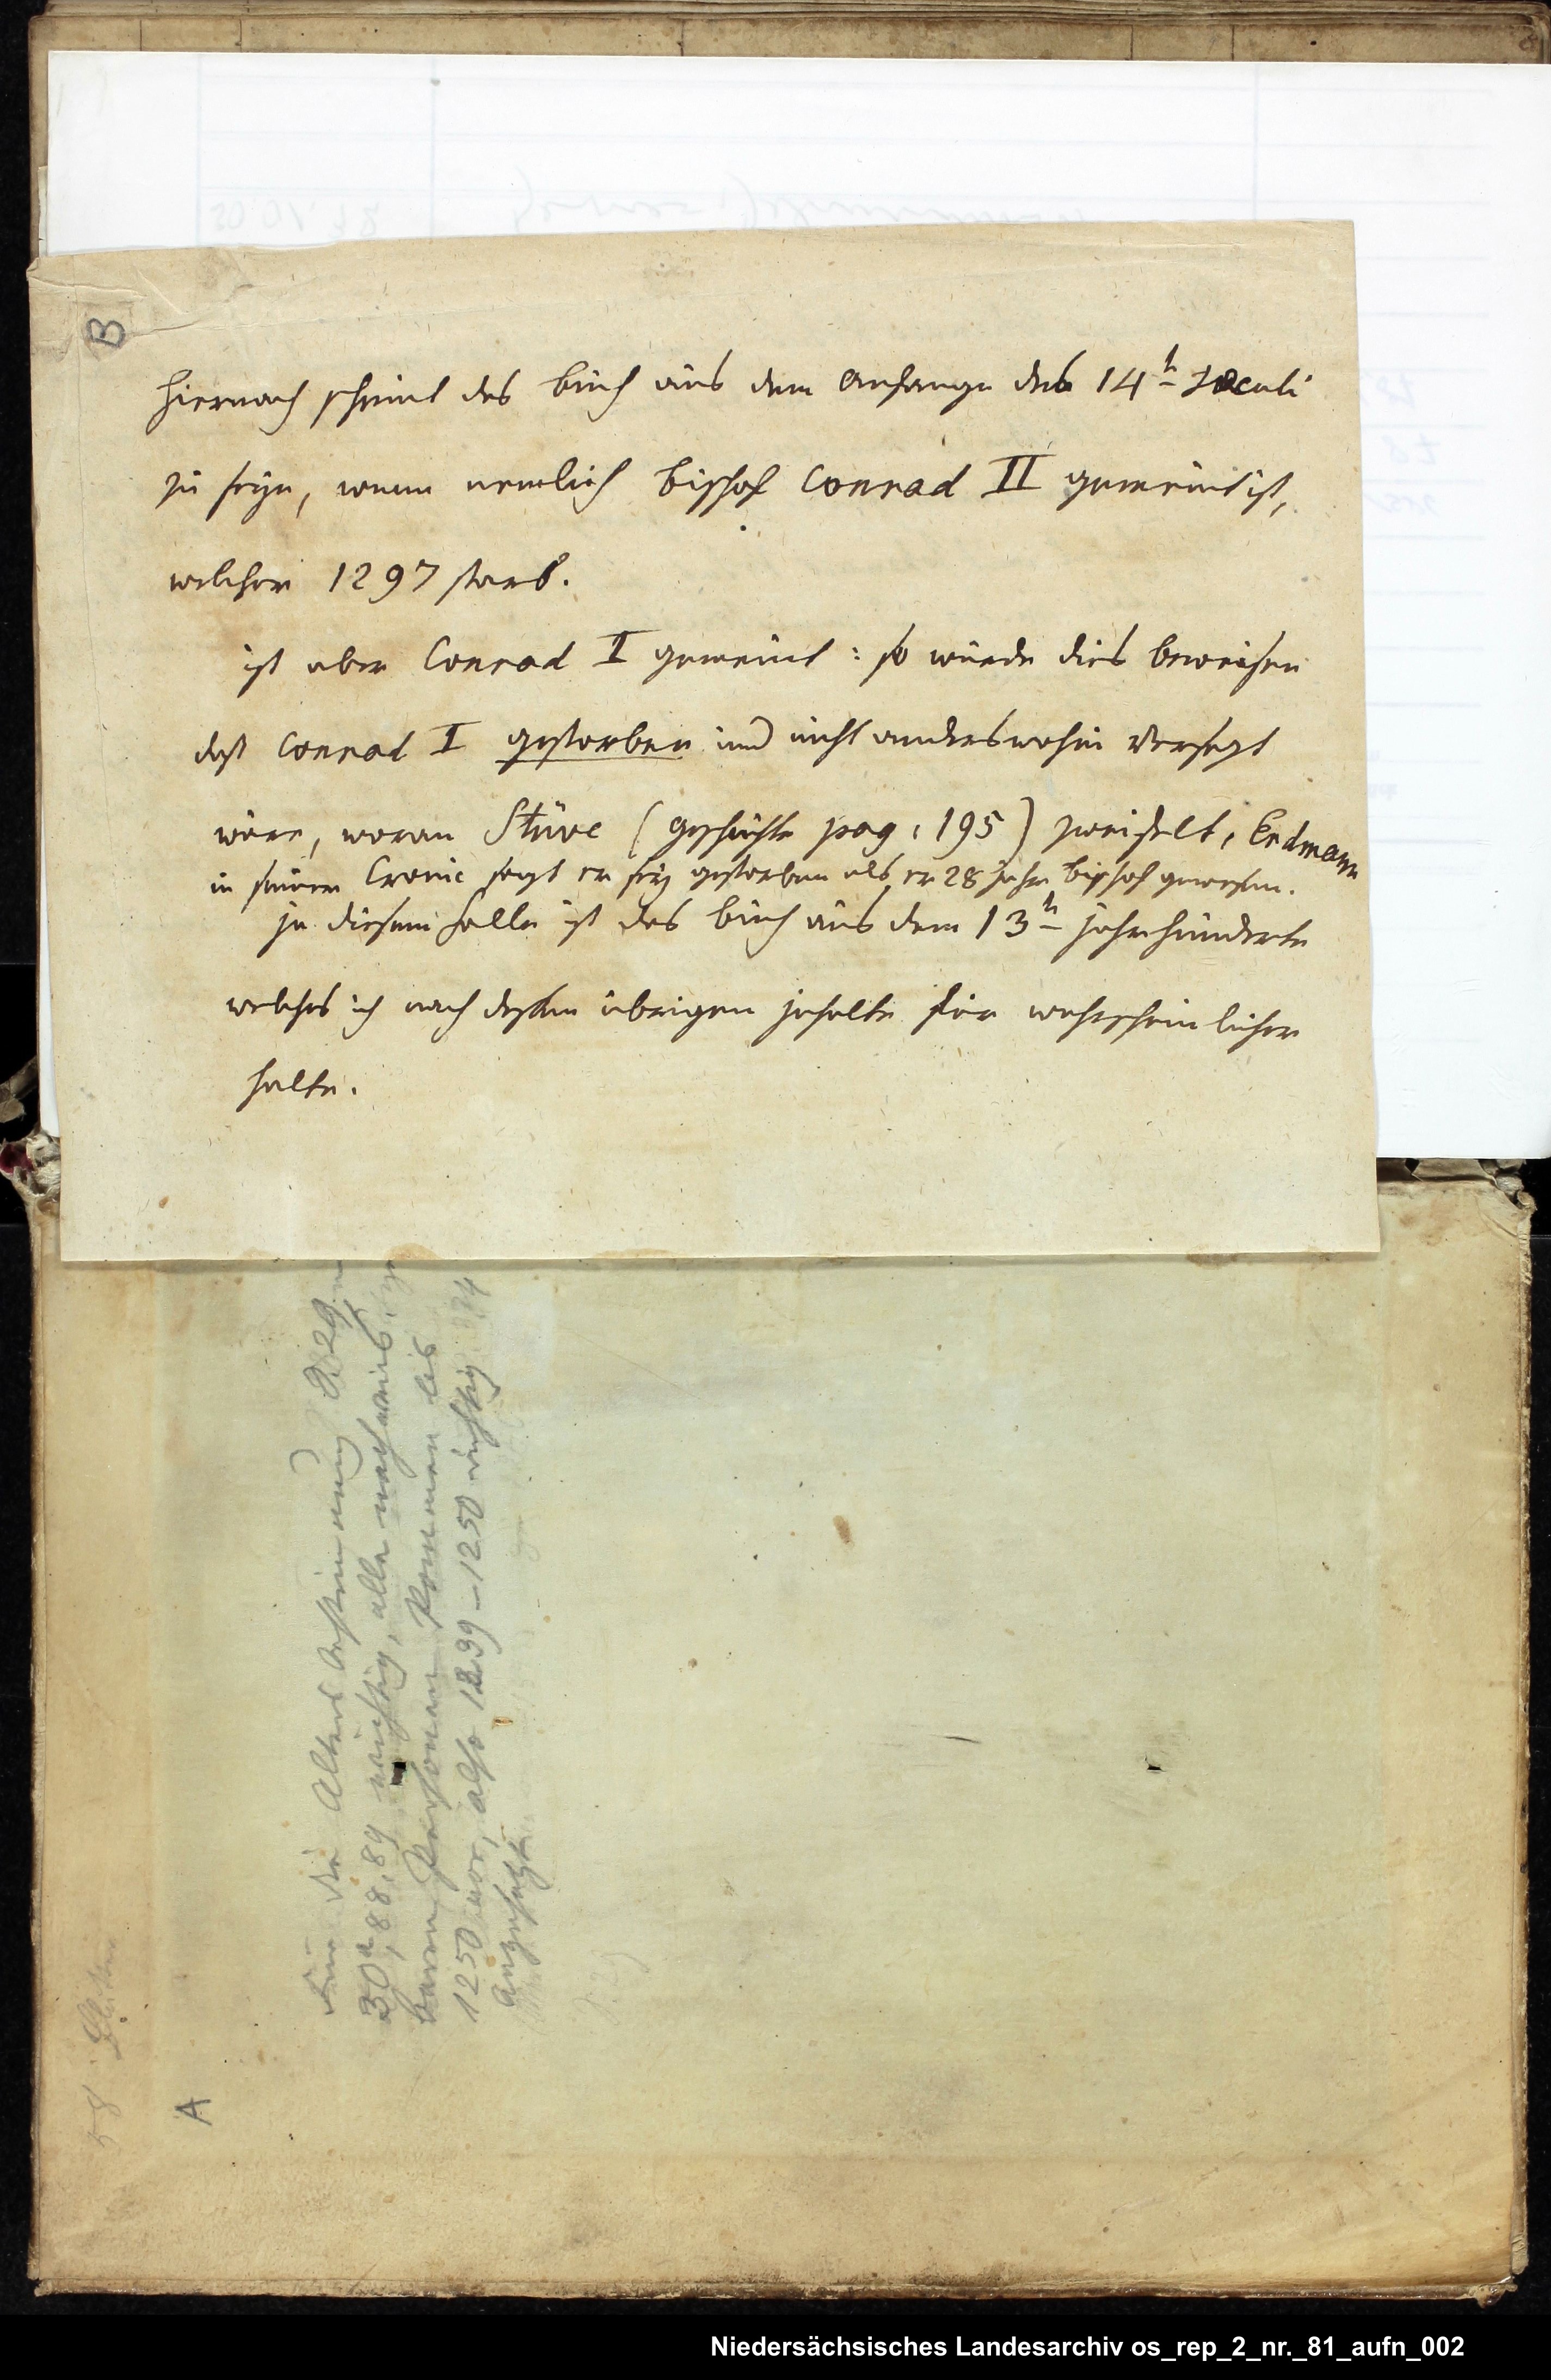 B
hiernach scheint das buch aus dem Anfange des 14ᵗ Saeculi
zu seyn, wenn nemlich bischof Conrad II gemeint ist,
welcher 1297 starb.
ist aber Conrad I gemeint: so würde dies beweisen
daß Conrad I gestorben und nicht anderswohin versezt
wäre, woran Stüve (geschichte pag. 195) zweifelt, Erdmann
in seiner Cronic sagt er sey gestorben als er 28 jahr bischof gewesen.
in diesem falle ist das buch aus dem 13ᵗ jahrhunderte
welches ich nach dessen übrigem inhalte für wahrscheinlicher
halte.
Für die Altersbestimmung S. 29,
30ᵃ, 88, 89 wichtig, alle nachweis-
baren Personen kommen bis
1250 vor, also 1239–1250 richtig
angesetzt
A
58
Niedersächsisches Landesarchiv os_rep_2_nr._81_aufn_002